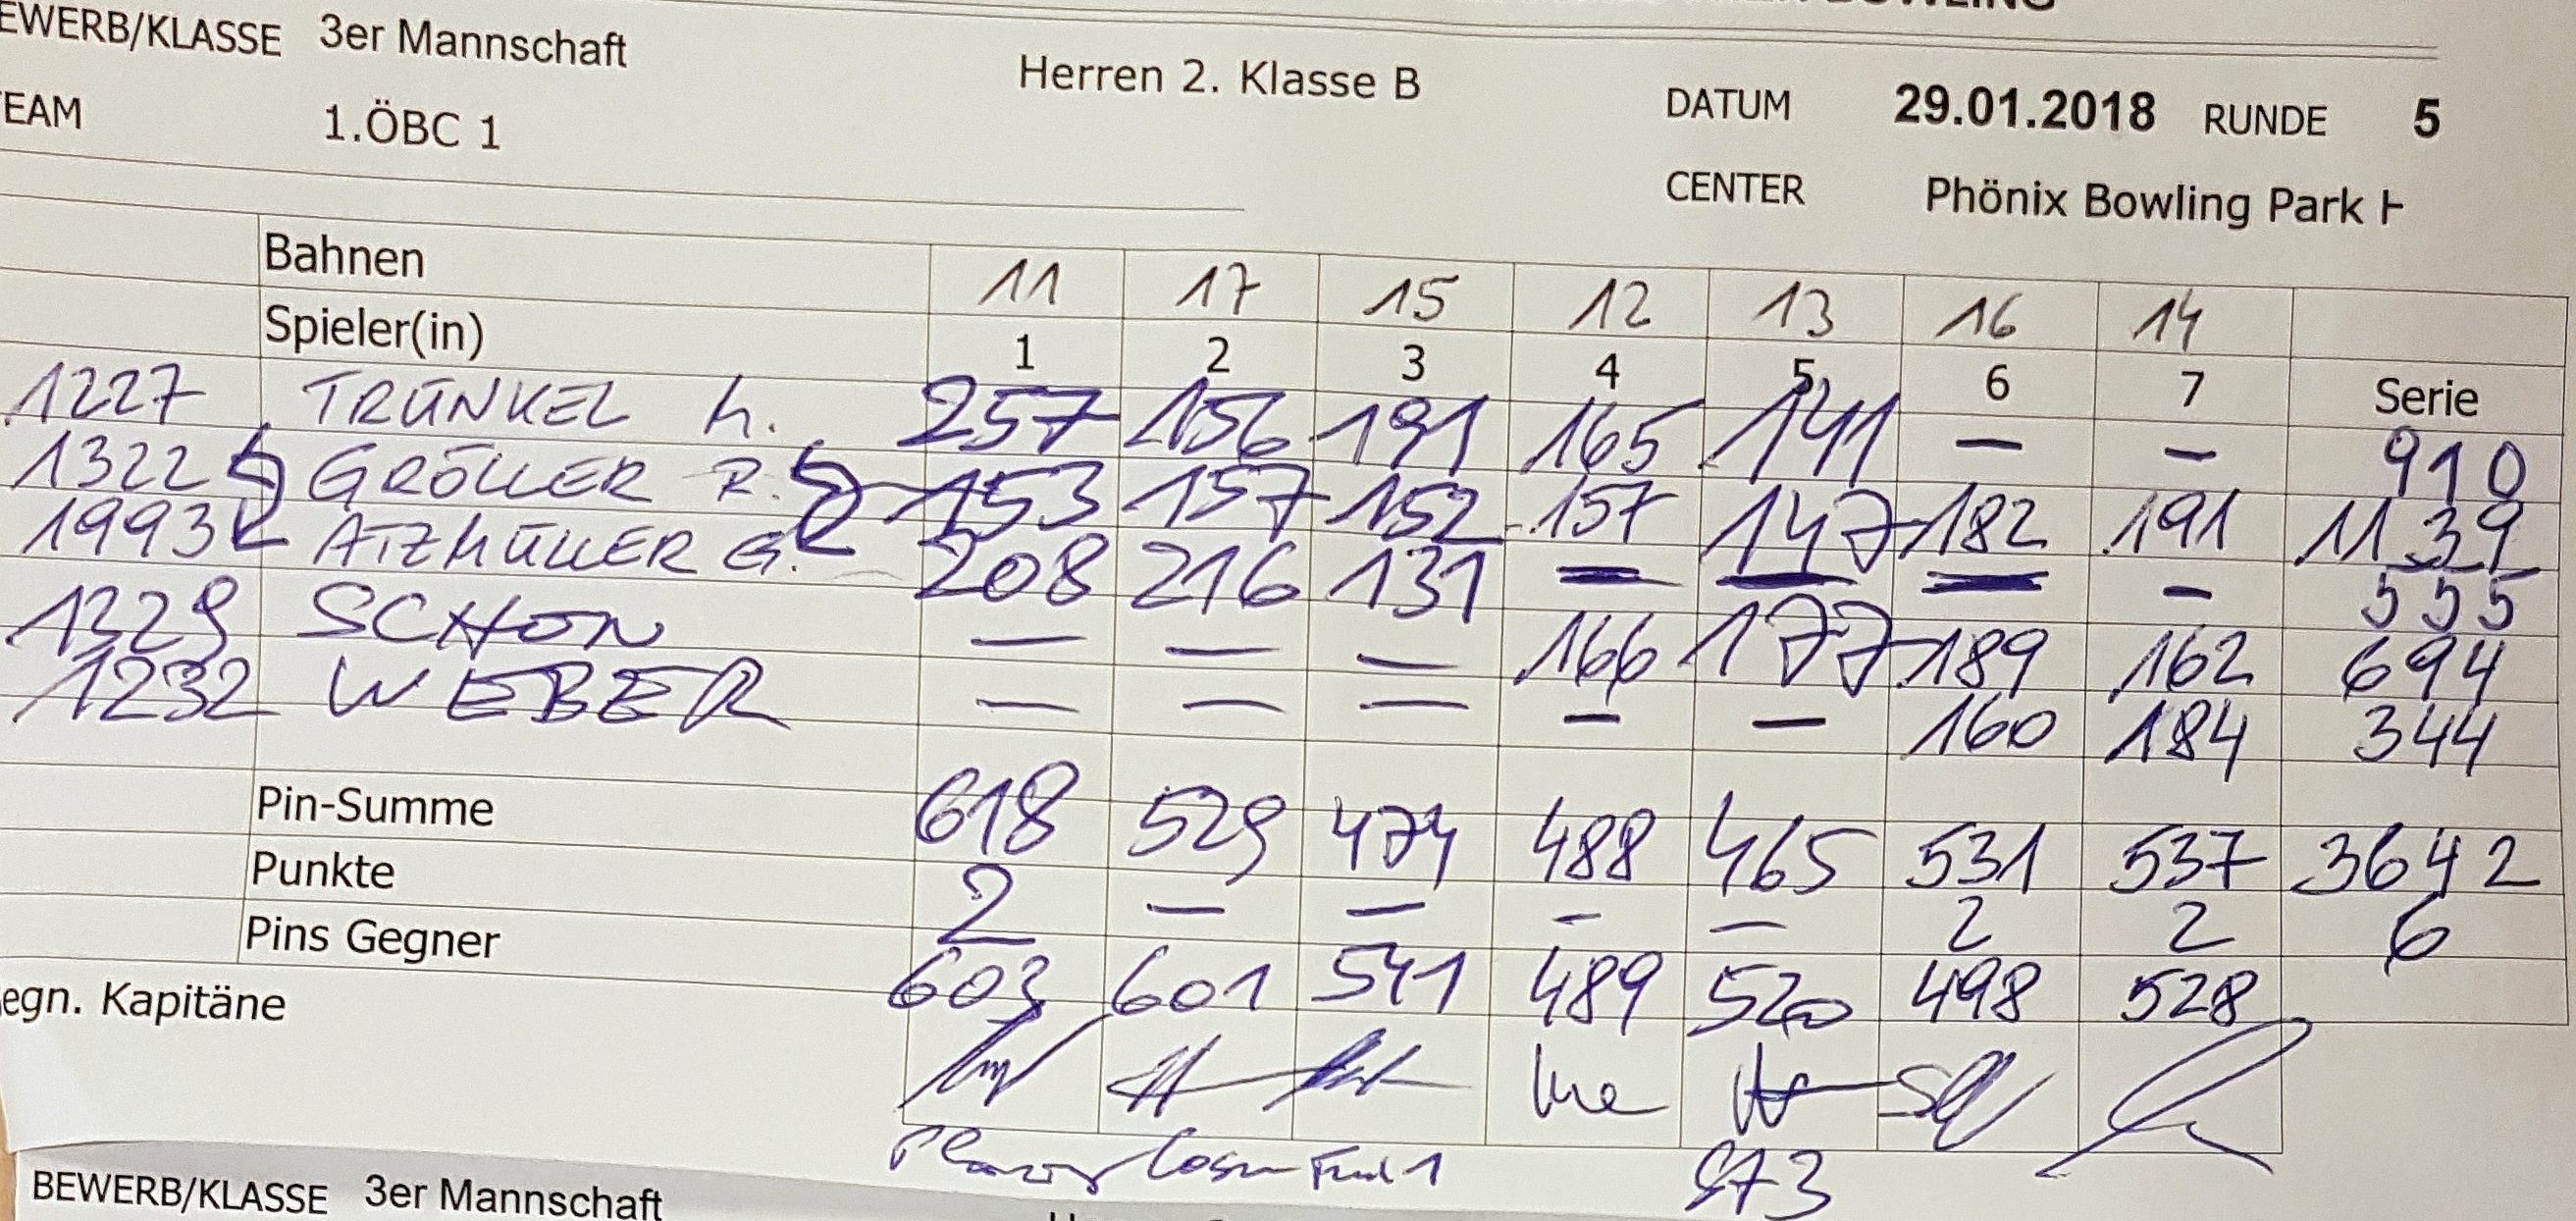 EWERB/KLASSE 3er Mannschaft
Herren 2. Klasse B
EAM 1.ÖBC 1
DATUM 29.01.2018 RUNDE 5
CENTER Phönix Bowling Park H
Bahnen 11 17 15 12 13 16 14
Spieler(in) 1 2 3 4 5 6 7 Serie
1227 TRÜNKEL h. 257 156 191 165 141 — — 910
1322 GRÖLLER R. 153 157 152 157 147 182 191 1139
1993 ATZMÜLLER G. 208 216 131 — — — — 555
1329 SCHÖN — — — 166 177 189 162 694
1232 WEBER — — — — — 160 184 344
Pin-Summe 618 529 474 488 465 531 537 3642
Punkte 2 — — — — 2 2 6
Pins Gegner 603 601 541 489 520 498 528
egn. Kapitäne
BEWERB/KLASSE 3er Mannschaft